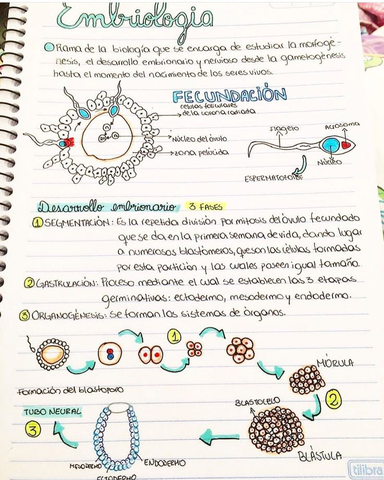 Embriología
Rama de la biología que se encarga de estudiar la morfogé-
nesis, el desarrollo embrionario y nervioso desde la gametogénesis
hasta el momento del nacimiento de los seres vivos.
FECUNDACIÓN
células foliculares
de la corona radiada
Núcleo del óvulo
zona pelúcida
flagelo
Acrosoma
Núcleo
ESPERMATOZOIDE
Desarrollo embrionario 3 FASES
① SEGMENTACIÓN: Es la repetida división por mitosis del óvulo fecundado
que se da en la primera semana de vida, dando lugar
a numerosos blastómeros, que son las células formadas
por esta partición y las cuales poseen igual tamaño.
② GASTRULACIÓN: Proceso mediante el cual se establecen las 3 etapas
germinativas: ectodermo, mesodermo y endodermo.
③ ORGANOGÉNESIS: Se forman los sistemas de órganos.
①
MÓRULA
②
BLASTOCELO
BLÁSTULA
Formación del blastoporo
TUBO NEURAL
③
MESODERMO
ENDODERMO
ECTODERMO
tilibra